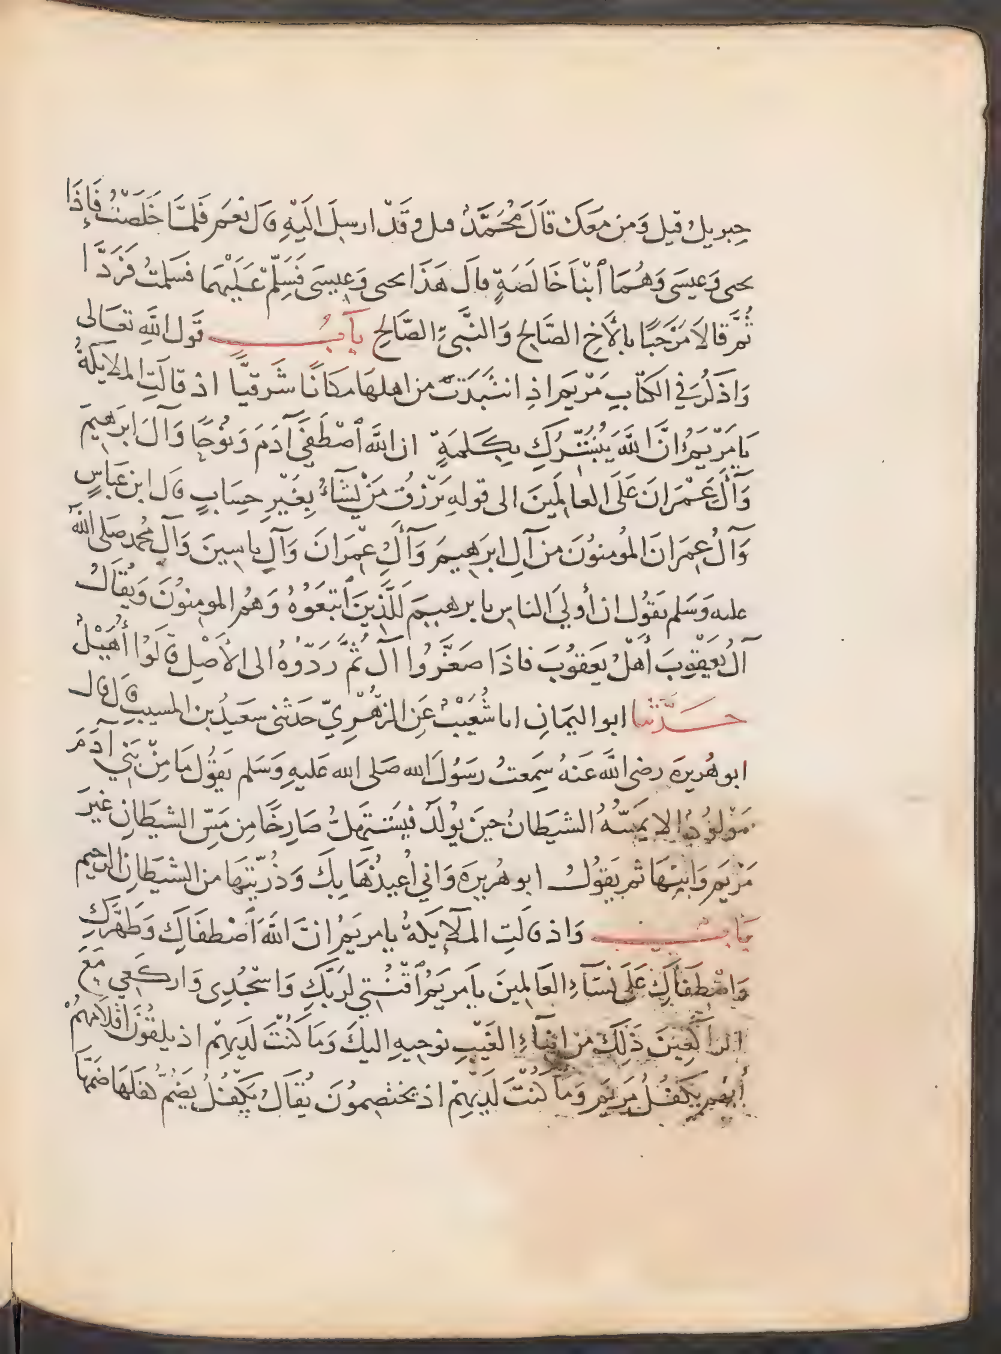 جبريل قيل وَمن مَعَكَ قَالَ مُحَمَّدٌ قيل وَقَدْ ارسِلَ اِلَيْهِ قَالَ نعَم فَلمَّا خَلَصْتُ فَإِذَا
يحيى وَعيسَى وَهُمَا ابْنَا خَالَةٍ قالَ هَذَا يحيى وَعِيسَى فَسَلِّمْ عَلَيْهِمَا فسَلمتُ فَرَدَّا
ثُمَّ قالَا مَرْحَبًا بالْأَخِ الصَّالِحِ وَالنَّبِيِّ الصَّالِحِ بَابُ قَول اللهِ تعَالى
وَاذكُرْ فِي الكِتَابِ مَرْيَمَ اذِ انتَبَذَتْ من اهلِهَا مَكَانًا شَرقيًّا اذ قالَتِ الملَائِكَةُ
يَا مَرْيَمُ إنَّ اللَّهَ يُبَشِّرُكِ بِكَلِمَةٍ ان اللهَ اصْطَفَى آدَمَ وَنُوحًا وَآلَ ابرَاهِيمَ
وَآلَ عِمْرَانَ عَلَى العَالمِينَ الى قوله يَرْزُقُ مَنْ يَشَاءُ بِغَيْرِ حِسَابٍ قَالَ ابن عَبَّاسٍ
وَآلُ عِمرَانَ المُومنُونَ من آلِ ابرَهيمَ وَآلِ عِمْرَانَ وَآلِ يَاسِينَ وَآلِ مُحمد صَلى اللهُ
عليه وَسَلم يَقُولُ ان أولَى الناسِ بابرهيمَ لَلَّذِينَ اتبَعُوهُ وَهُمُ المومنُونَ وَيُقَالُ
آلُ يَعْقُوبَ أَهْلُ يَعقُوبَ فَاذَا صَغَّرُوا آلَ ثُمَّ رَدّوُهُ الى الأَصْلِ قَالُوا أُهَيْلُ
حَدَّثنا ابو اليَمَانِ انا شُعَيْبٌ عَنِ الزُّهْرِيّ حَدثنى سَعِيدُ بن المسيب قَالَ قال
ابو هُرَيرَة رضى اللهُ عَنهُ سَمِعتُ رَسُولَ الله صَلى الله عَليهِ وَسَلم يَقُولُ مَا مِنْ بَنِي آدَمَ
مَوْلُودٌ الا يَمَسُّهُ الشيطَانُ حينَ يُولَدُ فَيَسْتَهِلُّ صَارِخًا مِن مَسِّ الشيطَانِ غيرَ
مَرْيَم وَابْنِهَا ثم يَقُولُ ابو هُرَيرَة وَانِي أُعِيذُهَا بِكَ وَذُرِّيَّتَهَا من الشيطَانِ الرجيم
بَابٌ وَاذ قَالَتِ الملَائِكَةُ يا مريَمُ انَّ اللهَ اصْطفَاكِ وَطهَّرَكِ
وَاصْطَفَاكِ عَلَى نسَآءِ العَالمِينَ يَا مَريَمُ اقْنُتِي لرَبِّكِ وَاسْجُدِى وَاركَعِي مَعَ
الرَّاكِعِينَ ذَلِكَ مِن انبَآءِ الغَيْبِ نوحيهِ اليكَ وَمَا كُنْتَ لَدَيهِمْ اذ يلقُونَ اقْلَامَهُمْ
أيُّهُم يَكفُلُ مَريَمَ وَمَا كُنْتَ لَدَيْهِمْ اذ يختَصِمُونَ يُقَالُ يَكْفُلُ يَضُمُّ كَفلَهَا ضَمَّهَا